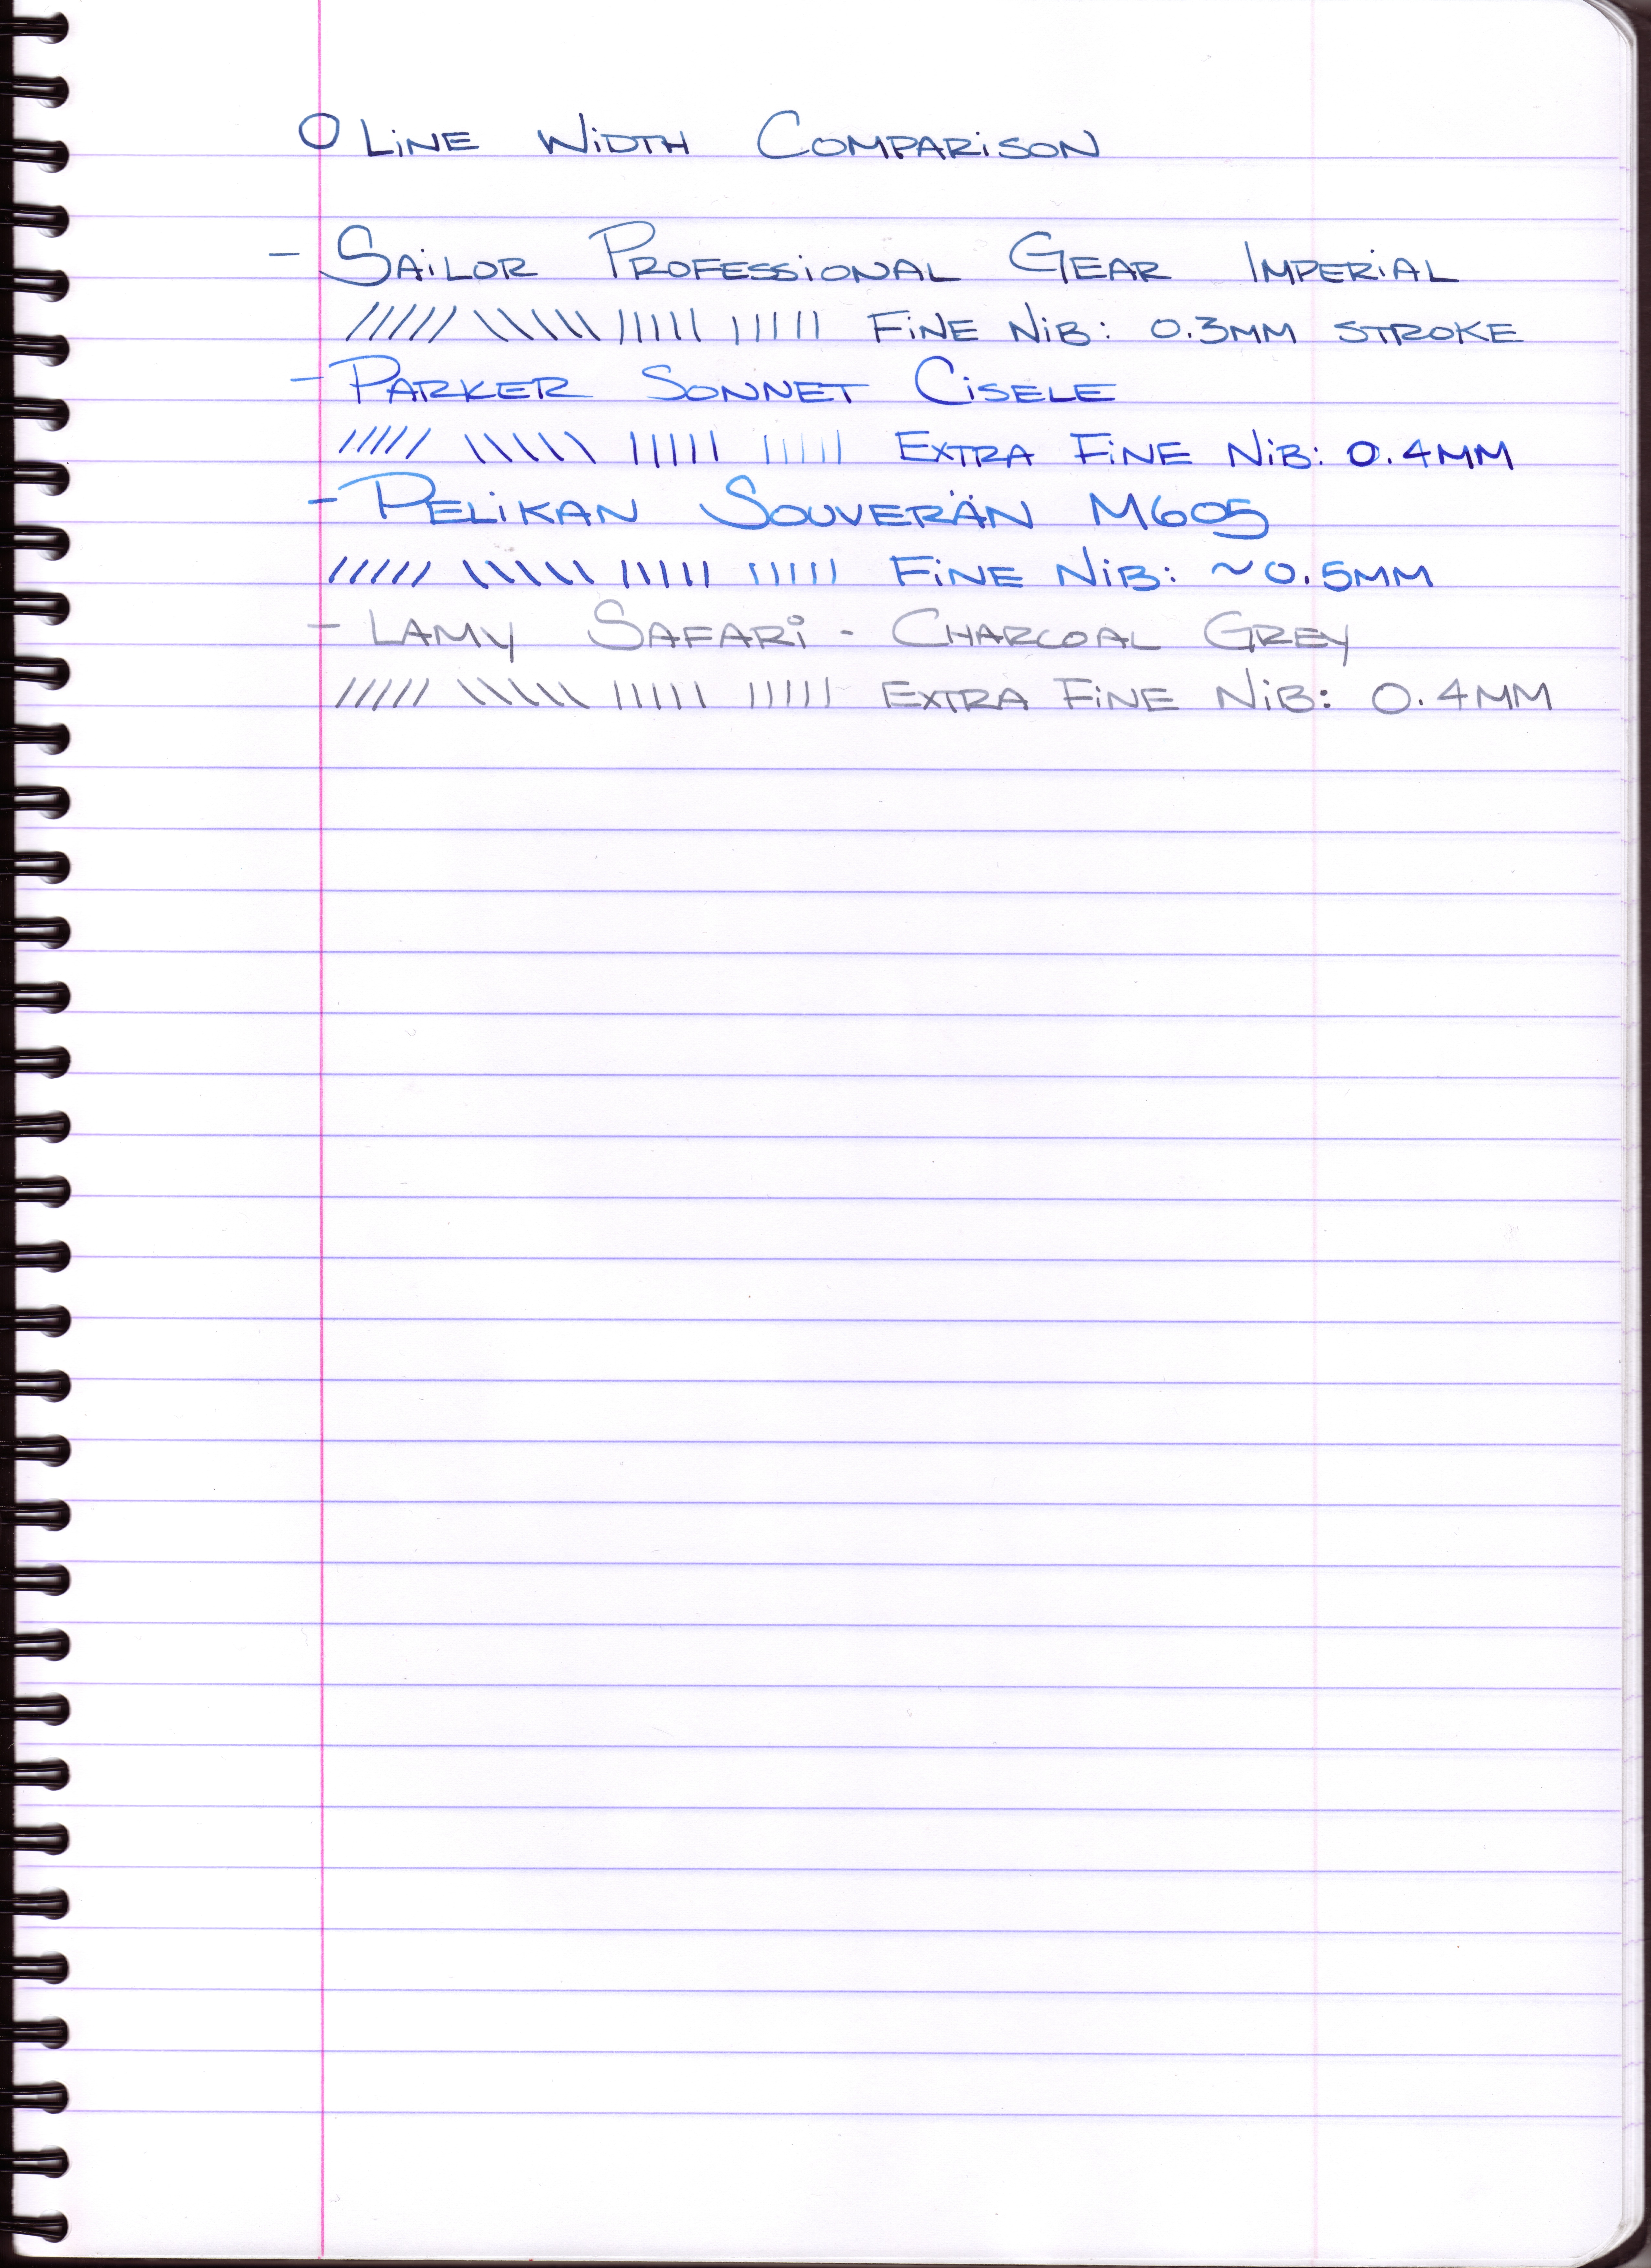 O LiNE WiDTH COMPARiSON
- SAiLOR PROFESSiONAL GEAR IMPERiAL
///// \\\\\ ||||| ||||| FiNE NiB: 0.3MM STROKE
- PARKER SONNET CiSELE
///// \\\\\ ||||| ||||| EXTRA FiNE NiB: 0.4MM
- PELiKAN SOUVERÄN M605
///// \\\\\ ||||| ||||| FiNE NiB: ~0.5MM
- LAMY SAFARi - CHARCOAL GREY
///// \\\\\ ||||| ||||| EXTRA FiNE NiB: 0.4MM